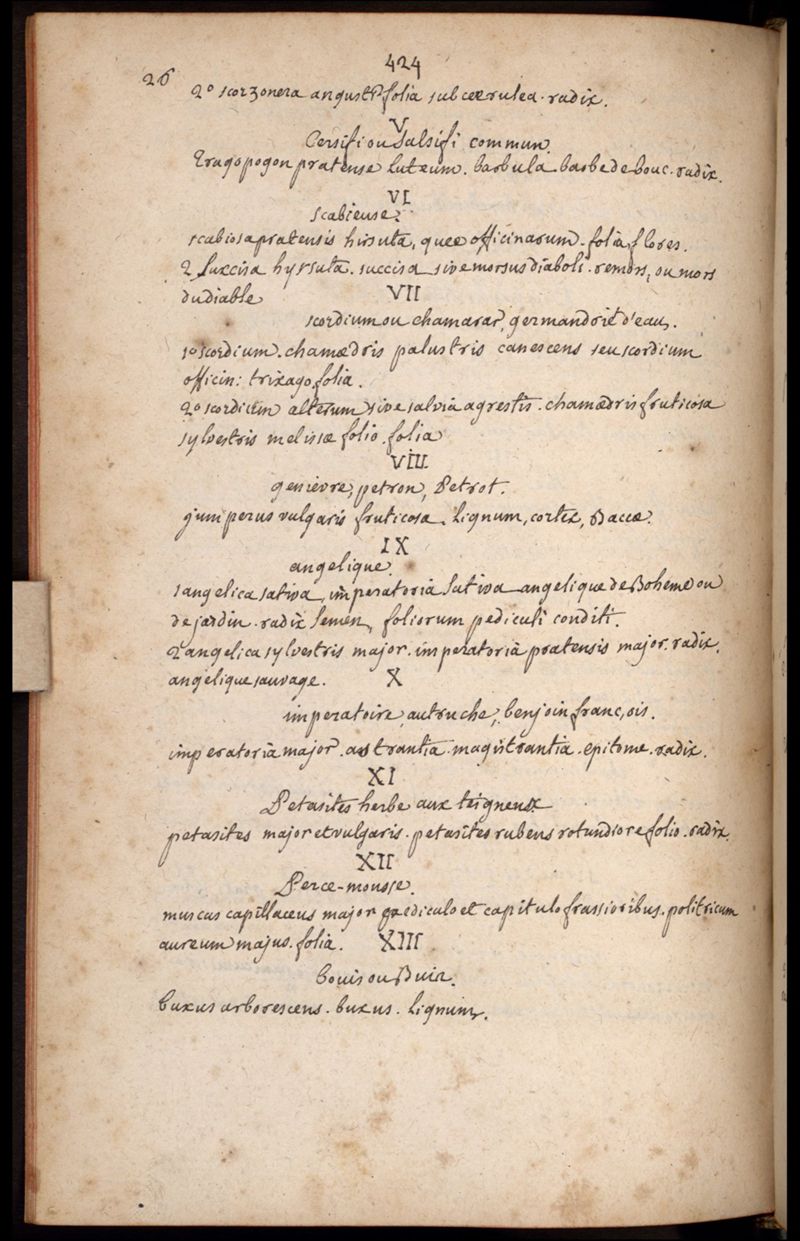 424
26
2° scorzonera angustifolia subcoerulea. radix.
V
Cersifi ou Salsifi commun.
Tragopogon pratense luteum. barbula. barbe de bouc. radix.
VI
scabieuse.
scabiosa pratensis hirsuta, quae officinarum. folia, flores.
2 succisa hyrsuta. succisa sive morsus diaboli. remors, ou mors
du diable
VII
scordium ou chamarar, germandrié d'eau.
1° scordium. chamaedris palustris canescens seu scordium
officin: trixago. folia.
2° scordium alterum sive salvia agrestis. chamaedris fruticosa
sylvestris melissae folio. folia
VIII
genievre, petron, Petrot.
Juniperus vulgaris fruticosa. lignum, cortex, Baccae.
IX
angelique.
1 angelica sativa, imperatoria sativa angelique de Boheme ou
de jardin. radix semen, foliorum pediculi conditi.
2 angelica sylvestris major. imperatoria pratensis major. radix.
angelique sauvage.
X
imperatoire, autruche, benjoin franc,ois.
imperatoria major. astrantia. magistrantia. epitome. radix.
XI
Petasites herbe aux teigneux
petasites major et vulgaris. petasites rubens rotundiore folio. radix.
XII
Perce-mousse.
muscus capillaceus major pediculo et capitulo frassioribus. politricum
aureum majus. folia.
XIII
bouis ou Buix.
buxus arborescens. buxus. lignum.